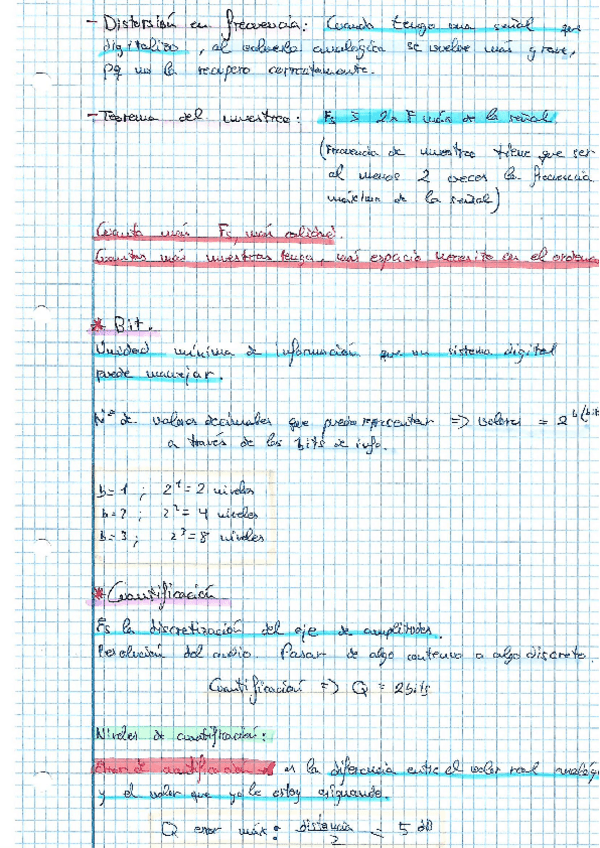 - Distorsión en frecuencia: Cuando tengo una señal que
digitalizo, al volverla analógica se vuelve más grave,
pq no la recupero correctamente.
- Teorema del muestreo: Fs ≥ 2 x F máx de la señal
(Frecuencia de muestreo tiene que ser
al menos 2 veces la frecuencia
máxima de la señal)
Cuanta más Fs, más calidad.
Cuantas más muestras tenga, más espacio necesito en el ordena
* Bit.
Unidad mínima de información que un sistema digital
puede manejar.
Nº de valores decimales que puedo representar => valores = 2^b (bit
a través de los bits de info.
b=1 ; 2^1 = 2 niveles
b=2 ; 2^2 = 4 niveles
b=3 ; 2^3 = 8 niveles
* Cuantificación
Es la discretización del eje de amplitudes.
Resolución del audio. Pasar de algo continuo a algo discreto.
Cuantificación => Q = 2bits
Niveles de cuantificación:
Error de cuantificación es la diferencia entre el valor real analóg
y el valor que yo le estoy asignando.
Q error máx: distancia / 2 = 5